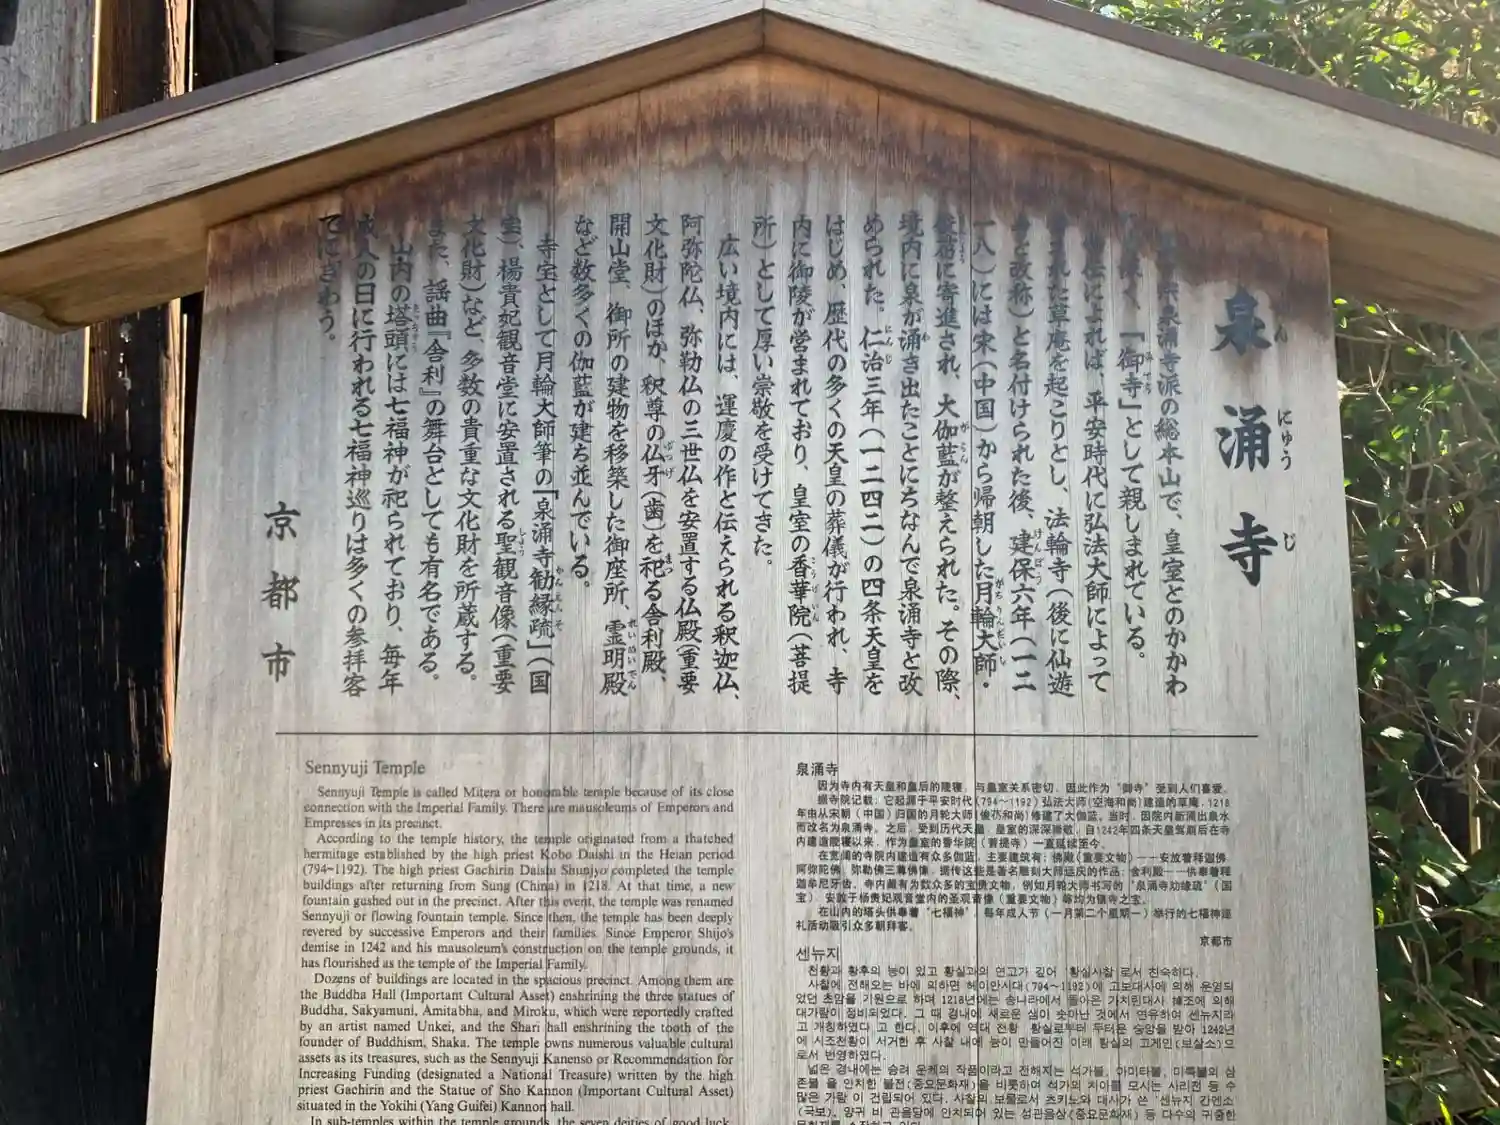 泉涌寺
宗泉涌寺派の総本山で、皇室とのかかわ
く、「御寺」として親しまれている。
伝によれば、平安時代に弘法大師によって
れた草庵を起こりとし、法輪寺(後に仙遊
寺と改称)と名付けられた後、建保六年(一二
一八)には宋(中国)から帰朝した月輪大師・
俊芿に寄進され、大伽藍が整えられた。その際、
境内に泉が涌き出たことにちなんで泉涌寺と改
められた。仁治三年(一二四二)の四条天皇を
はじめ、歴代の多くの天皇の葬儀が行われ、寺
内に御陵が営まれており、皇室の香華院(菩提
所)として厚い崇敬を受けてきた。
広い境内には、運慶の作と伝えられる釈迦仏、
阿弥陀仏、弥勒仏の三世仏を安置する仏殿(重要
文化財)のほか、釈尊の仏牙(歯)を祀る舎利殿、
開山堂、御所の建物を移築した御座所、霊明殿
など数多くの伽藍が建ち並んでいる。
寺宝として月輪大師筆の『泉涌寺勧縁疏』(国
宝)、楊貴妃観音堂に安置される聖観音像(重要
文化財)など、多数の貴重な文化財を所蔵する。
また、謡曲『舎利』の舞台としても有名である。
山内の塔頭には七福神が祀られており、毎年
成人の日に行われる七福神巡りは多くの参拝客
でにぎわう。
京都市
Sennyuji Temple
Sennyuji Temple is called Mitera or honorable temple because of its close
connection with the Imperial Family. There are mausoleums of Emperors and
Empresses in its precinct.
According to the temple history, the temple originated from a thatched
hermitage established by the high priest Kobo Daishi in the Heian period
(794-1192). The high priest Gachirin Daishi Shunjyo completed the temple
buildings after returning from Sung (China) in 1218. At that time, a new
fountain gushed out in the precinct. After this event, the temple was renamed
Sennyuji or flowing fountain temple. Since then, the temple has been deeply
revered by successive Emperors and their families. Since Emperor Shijo's
demise in 1242 and his mausoleum's construction on the temple grounds, it
has flourished as the temple of the Imperial Family.
Dozens of buildings are located in the spacious precinct. Among them are
the Buddha Hall (Important Cultural Asset) enshrining the three statues of
Buddha, Sakyamuni, Amitabha, and Miroku, which were reportedly crafted
by an artist named Unkei, and the Shari hall enshrining the tooth of the
founder of Buddhism, Shaka. The temple owns numerous valuable cultural
assets as its treasures, such as the Sennyuji Kanenso or Recommendation for
Increasing Funding (designated a National Treasure) written by the high
priest Gachirin and the Statue of Sho Kannon (Important Cultural Asset)
situated in the Yokihi (Yang Guifei) Kannon hall.
In sub-temples within the temple grounds, the seven deities of good luck,
泉涌寺
因为寺内有天皇和皇后的陵寝，与皇室关系密切，因此作为“御寺”受到人们喜爱。
据寺院记载：它起源于平安时代(794～1192)弘法大师(空海和尚)建造的草庵，1218
年由从宋朝（中国）归国的月轮大师(俊芿和尚)修建了大伽蓝。当时，因院内新涌出泉水
而改名为泉涌寺。之后，受到历代天皇、皇室的深深崇敬，自1242年四条天皇驾崩后在寺
内建造陵寝以来，作为皇室的香华院（菩提寺）一直延续至今。
在宽阔的寺院内建造有众多伽蓝，主要建筑有：佛殿(重要文物)——安放着释迦佛
阿弥陀佛、弥勒佛三尊佛像，据传这些是著名雕刻大师运庆的作品；舍利殿——供奉着释
迦牟尼牙齿。寺内藏有为数众多的宝贵文物，例如月轮大师书写的“泉涌寺劝缘疏”（国
宝）、安放于杨贵妃观音堂内的圣观音像（重要文物）等均为镇寺之宝。
在山内的塔头供奉着“七福神”，每年成人节（一月第二个星期一）举行的七福神巡
礼活动吸引众多朝拜客。
京都市
센뉴지
천황과 황후의 능이 있고 황실과의 연고가 깊어 황실사찰 로서 친숙하다.
사찰에 전해오는 바에 의하면 헤이안시대(794～1192)에 고보대사에 의해 운영되
었던 초암을 기원으로 하며 1218년에는 송나라에서 돌아온 가치린대사 에 의해
대가람이 정비되었다. 그 때 경내에 새로운 샘이 솟아난 것에서 연유하여 센뉴지라
고 개칭하였다 고 한다. 이후에 역대 천황 황실로부터 두터운 숭앙을 받아 1242년
에 시조천황이 서거한 후 사찰 내에 능이 만들어진 이래 황실의 고게인(보살소)으
로서 번영하였다.
넓은 경내에는 승려 운케의 작품이라고 전해지는 석가불, 아미타불, 미륵불의 삼
존불 을 안치한 불전(중요문화재)을 비롯하여 석가의 치아를 모시는 사리전 등 수
많은 가람 이 건립되어 있다. 사찰의 보물로서 대사가 쓴 센뉴지 간엔소
(국보), 양귀 비 관음당에 안치되어 있는 성관음상(중요문화재) 등 다수의 귀중한